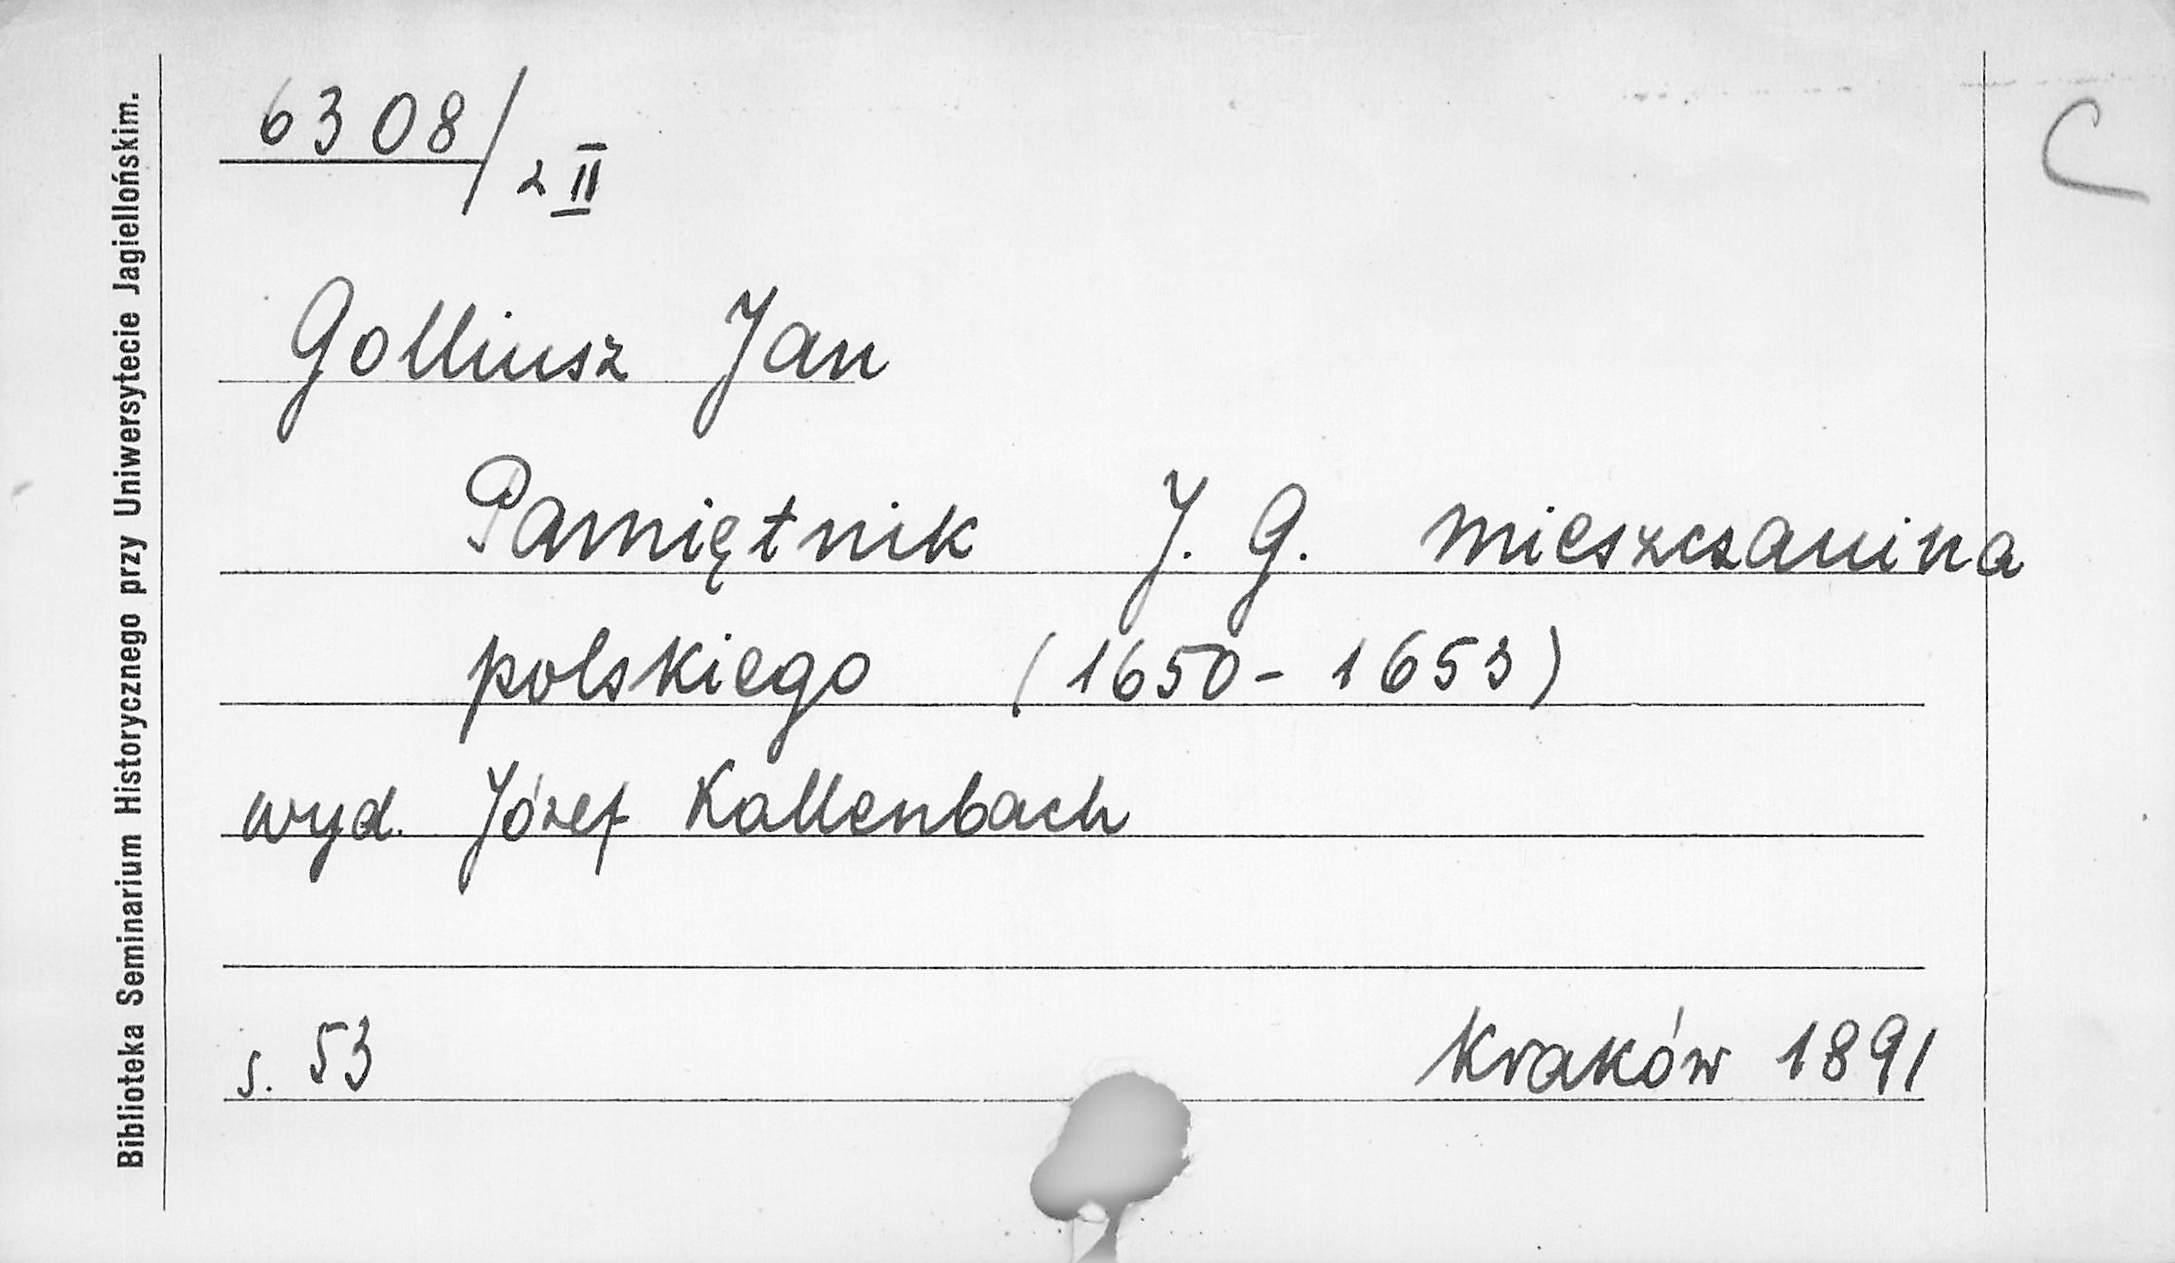 6308/2 II
C
Golliusz Jan
Pamiętnik J. G. mieszczanina
polskiego (1650-1653)
wyd. Józef Kallenbach
s. 53 Kraków 1891
Biblioteka Seminarium Historycznego przy Uniwersytecie Jagiellońskim.